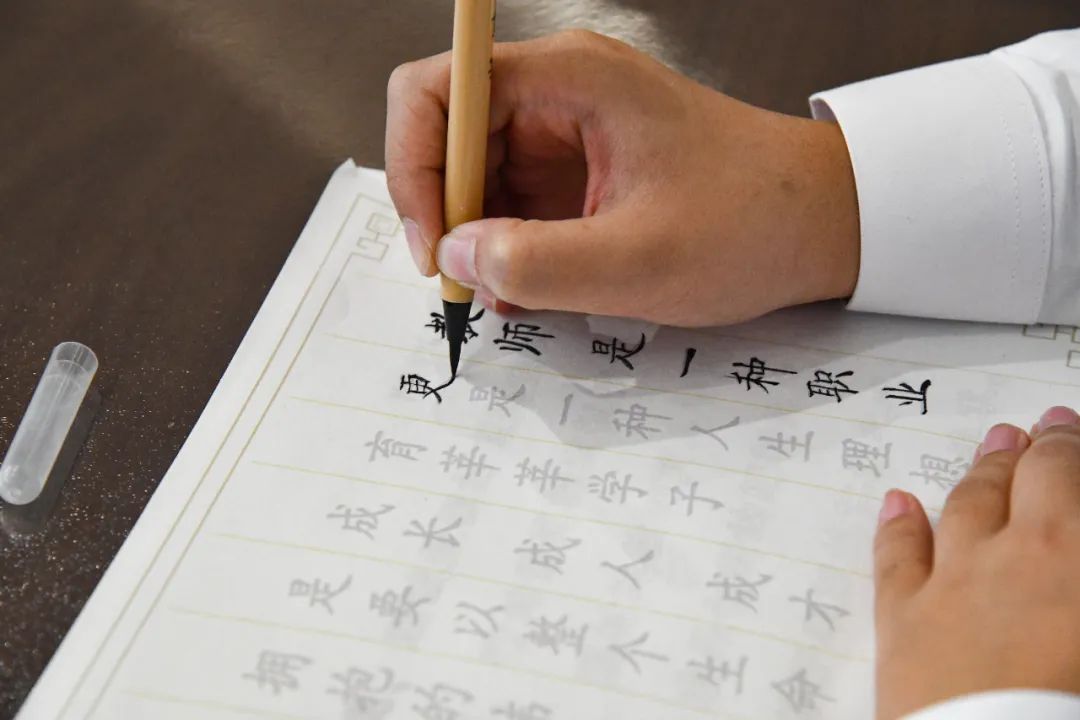 教师是一种职业
更是一种人生理想
育莘莘学子
成长 成人 成才
是要以整个生命
拥抱的